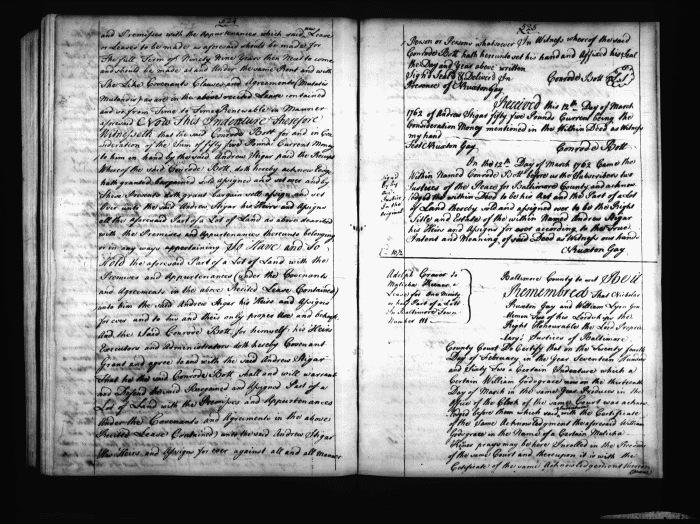 524
and Premises with the Appurtenances which said new Lease
or Leases to be made as aforesaid should be made for
the full Term of Ninety Nine Years then Next to come
and should be made at and Under the same Rent and with
the Like Covenants Clauses and Agreements (Mutatis
Mutandis) as are in the above recited Lease contained
and so from Time to Time Renewable in Manner
aforesaid Now This Indenture therefore
Witnesseth that the said Conrode Bott for and in Con=
sideration of the Sum of fifty five Pounds Current Money
to him in hand by the said Andrew Stigar paid the Receipt
Whereof the said Conrode Bott doth hereby acknowledge
hath granted bargained sold assigned and set over and by
these Presents doth grant bargain sell assign and set
over unto the said Andrew Stigar his Heirs and Assigns
all the aforesaid Part of a Lot of Land as above described
with the Premises and Appurtenances thereunto belonging
or in any ways appertaining To Have and to
Hold the aforesaid Part of a Lot of Land with the
Premises and Appurtenances (under the Covenants
and Agreements in the above Recited Lease Contained)
unto him the said Andrew Stigar his Heirs and Assigns
for ever and to his and their only proper Use and behoof
And the said Conrode Bott for himself his Heirs
Executors and Administrators doth hereby Covenant
Grant and agree to and with the said Andrew Stigar
that he the said Conrode Bott shall and will warrant
and defend the said Bargained and Assigned Part of a
Lot of Land with the Premises and Appurtenances
Under the Covenants and Agreements in the above
Recited Lease Contained) unto the said Andrew Stigar
his Heirs and Assigns for ever against all and all Manner
525
Person or Persons whatsoever In Witness whereof the said
Conrode Bott hath hereunto set his hand and Affixed his Seal
the Day and Year above written
Signd Seald & Deliverd In
Presence of Nruxton Gay
Conrode Bott
Received this 12th Day of March
1762 of Andrew Stigar fifty five Pounds Current being the
Consideration Money mentioned in the Within Deed as Witness
my hand
Test Nruxton Gay
Conrode Bott
On the 12th Day of March 1762 Came the
Within Named Conrode Bott before us the Subscribers two
Justices of the Peace for Baltimore County and acknow
ledged the within Deed to be his Act and the Part of a Lot
of Land thereby sold and assigned over to be the Right
Title and Estate of the within Named Andrew Stigar
his Heirs and Assigns for ever according to the True
Intent and Meaning of said Deed as Witness our hands
Nruxton Gay
Signd
by
Justices
in the
Original
Adolph
to
Malichia
Lease for One Ninety
Part of a Lot
in Baltimore Town
Number
Baltimore County to wit Be it
Remembred that Nicholas
Ruxton Gay and William Lyon Gen
tlemen Two of his Lordships the
Right Honourable the Lord Proprie
tary's Justices of Baltimore
County Court Do Certify that on the Twenty fourth
Day of February in the Year Seventeen Hundred
and Sixty Two a Certain Indenture which a
Certain William Lodsgrace now on the thirteenth
Day of March in the same Year Produces in the
Office of the Clerk of the same Court was acknow
ledged before them which said with the Certificate
of the same Acknowledgement the aforesaid William
Lodsgrace in the Name of a Certain Malichia
prays may be Inrolled in the Records
of the same Court and thereupon it is with the
Certificate of the same Acknowledgement thereon